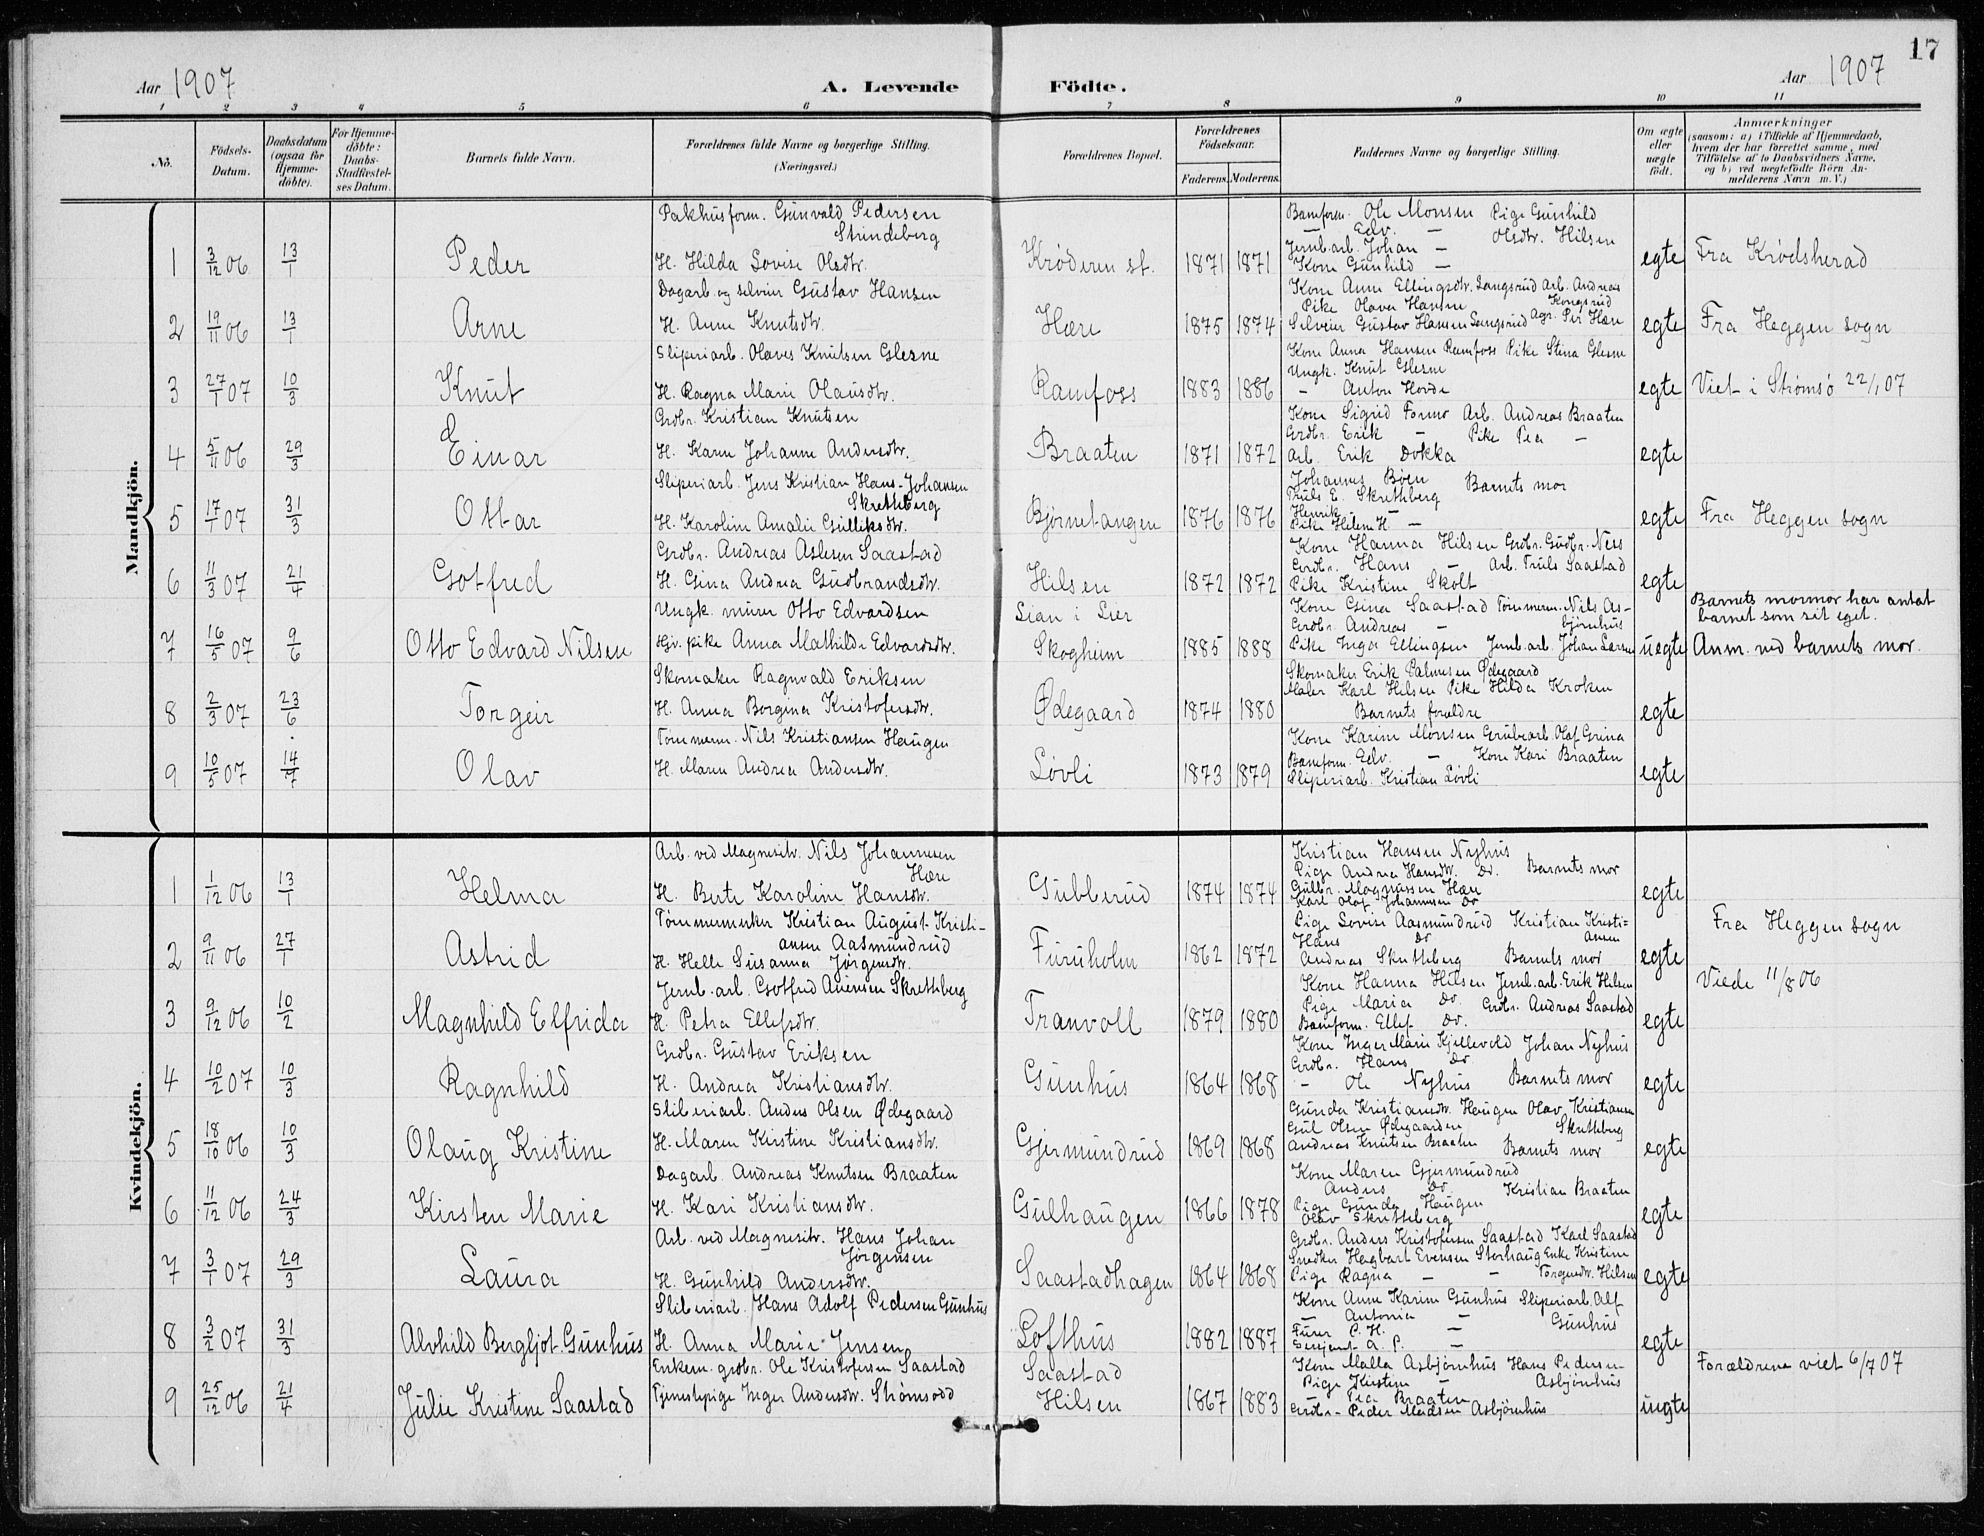 17
Aar 1907
A. Levende Födte.
Aar 1907
1 2 3 4 5 6 7 8 9 10 11
No.
Födsels-Datum.
Daabsdatum (ogsaa for Hjemme-döbte).
For Hjemme-döbte: Daabs-Stadfæstel-ses Datum.
Barnets fulde Navn.
Forældrenes fulde Navne og borgerlige Stilling.
(Næringsvei.)
Forældrenes Bopæl.
Forældrenes Födselsaar.
Faderens. Moderens.
Faddernes Navne og borgerlige Stilling.
Om ægte eller uægte født.
Anmærkninger
(saasom: a) i Tilfælde af Hjemmedaab, hvem der har forrettet samme, med Tilföielse af to Daabsvidners Navne, og b) ved uægtefödte Börn An-melderens Navn m. V.)
Mandkjön.
Pakhusform. Gunvald Pedersen Strindeberg
Bamform. Ole Monsen Pige Gunhild
— Edv. — Olsdtr. Hilsen
Jernb.arb. Johan —
1 3/12 06 13/1 Peder H. Hilda Lovise Olsdtr. Krøderen st. 1871 1871 Kone Gunhild — egte Fra Krødsherad
Dagarb. og selveier Gustav Hansen
Kone Anne Ellingsdtr. Langsrud Arb. Andreas Kongsrud
Pike Olava Hansen
2 19/11 06 13/1 Arne H. Anne Knutsdtr. Hære 1875 1874 Selveier Gustav Hansen Langsrud Agr. Per Hære egte Fra Heggen sogn
Sliperiarb. Olaves Knutsen Glesne
Kone Anna Hansen Ramfoss Pike Stina Glesne
Ungk. Knut Glesne
3 27/1 07 10/3 Knut H. Ragna Marie Olausdtr. Ramfoss 1883 1886 — Anton Horde egte Viet i Strømsö 22/1 07
Grdbr. Kristian Knutsen
Kone Sigrid Formo Arb. Andreas Braaten
Grdbr. Erik — Pike Pea —
4 5/11 06 29/3 Einar H. Karen Johanne Andersdtr. Braaten 1871 1872 Arb. Erik Dokka egte
Sliperiarb. Jens Kristian Hans-Johansen Skrethberg
Johannes Böen Barnets mor
Truls E. Skrethberg
Henrik —
5 17/1 07 31/3 Ottar H. Karoline Amalie Gulliksdtr. Bjørnetangen 1876 1876 Pike Helene H — egte Fra Heggen sogn
Grdbr. Andreas Aslesen Saastad
Kone Hanna Hilsen Grdbr. Gudbr. Ness
Grdbr. Hans — Arb. Truls Saastad
6 11/3 07 21/4 Gotfred H. Gina Andrea Gudbrandsdtr. Hilsen 1872 1872 Pike Kristine Skolt egte
Ungk. murer Otto Edvardsen Lian i Lier
Kone Gina Saastad Tømmerm. Nils As-bjørnhus
Grdbr. Andreas —
Barnets mormor har antat barnet som sit eget.
7 16/5 07 9/6 Otto Edvard Nilsen Hjv. pike Anna Mathilde Edvardsdtr. Skogheim 1885 1888 Pike Inga Ellingsen Jernb.arb. Johan Larsen uegte Anm. ved barnets mor.
Skomaker Ragnvald Eriksen
Skomaker Erik Palmesen Ødegaard
Maler Karl Hilsen Pike Hilda Kroken
8 2/3 07 23/6 Torgeir H. Anna Borgina Kristofersdtr. Ødegaard 1874 1880 Barnets forældre egte
Tømmerm. Nils Kristiansen Haugen
Kone Karine Monsen Grubearb. Olaf Grina
Bamform. Edv. — Kone Kari Braaten
9 10/5 07 14/7 Olav H. Maren Andrea Andersdtr. Løvli 1873 1879 Sliperiarb. Kristian Løvli egte
Kvindekjön.
Arb. ved Magnesitv. Nils Johannesen Hære
Kristian Hansen Nyhus
Pige Andrea Hansdtr. Do. Barnets mor
Gulbr. Magnussen Hære
1 1/12 06 13/1 Helma H. Berte Karoline Hansdtr. Gubberud 1874 1874 Karl Olaf Johannesen Do egte
Tømmermerker Kristian August Kristi-ansen Aasmundrud
Pige Lovise Aasmundrud Kristian Kristi-ansen
Hans Do
2 9/11 06 27/1 Astrid H. Helle Susanna Jørgensdtr. Furuholm 1862 1872 Andreas Skrethberg Barnets mor egte Fra Heggen sogn
Jernb.arb. Gotfred Auensen Skrethberg
Kone Hanna Hilsen Jernb.arb. Erik Hilsen
Pige Maria Do. Grdbr. Andreas Saastad
3 9/12 06 10/2 Magnhild Elfrida H. Petra Ellefsdtr. Tranvoll 1879 1880 Bamform. Ellef Do. egte Viede 11/8 06
Grdbr. Gustav Eriksen
Kone Inger Marie Kjellevold Johan Nyhus
Grdbr. Hans Do
4 10/2 07 10/3 Ragnhild H. Andrea Kristiansdtr. Gunhus 1864 1868 — Ole Nyhus Barnets mor egte
Sliberiarb. Anders Olsen Ødegaard
Gunda Kristiansdtr. Haugen Olav Kristiansen Skrethberg
Gul Olsen Ødegaarden
5 18/10 06 10/3 Olaug Kristine H. Maren Kirstine Kristiansdtr. Gjermundrud 1869 1868 Andreas Knutsen Braaten Barnets mor egte
Dagarb. Andreas Knutsen Braaten
Kone Maren Gjermundrud
Anders Do Kristian Braaten
Pige Gunda Haugen
6 11/12 06 24/3 Kirsten Marie H. Kari Kristiansdtr. Gulhaugen 1866 1878 Olav Skrethberg egte
Arb. ved Magnesitv. Hans Johan Jørgensen
Grdbr. Anders Kristofersen Saastad Karl Saastad
Snedker Hagbart Evensen Storhaug Enke Kristine
7 3/1 07 29/3 Laura H. Gunhild Andersdtr. Saastadhagen 1864 1868 Pige Ragna — — Torgersdtr. Hilsen egte
Sliberiarb. Hans Adolf Pedersen Gunhus
Kone Anne Karine Gunhus Sliperiarb. Alf Gunhus
— Antonia —
Furer P. H. —
8 3/2 07 31/3 Alvhild Bergljot Gunhus H. Anna Marie Jensen Lofthus 1882 1887 Serjent A. P. — egte
Enkem. grdbr. Ole Kristofersen Saastad Saastad
Kone Malla Asbjørnhus Hans Pedersen Asbjørnhus
Pige Kirstine —
— Pea Braaten
Forældrene viet 6/7 07
9 25/12 06 21/4 Julie Kristine Saastad Tjenestepige Inger Andersdtr. Strømsodd Hilsen 1867 1883 Grdbr. Peder Madsen Asbjørnhus uegte